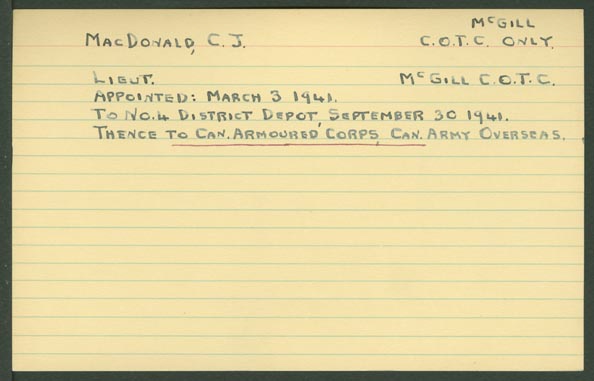 McGILL
MacDONALD, C. J. C.O.T.C. ONLY.
LIEUT. McGILL C.O.T.C.
APPOINTED: MARCH 3 1941.
TO NO.4 DISTRICT DEPOT, SEPTEMBER 30 1941.
THENCE TO CAN. ARMOURED CORPS, CAN. ARMY OVERSEAS.